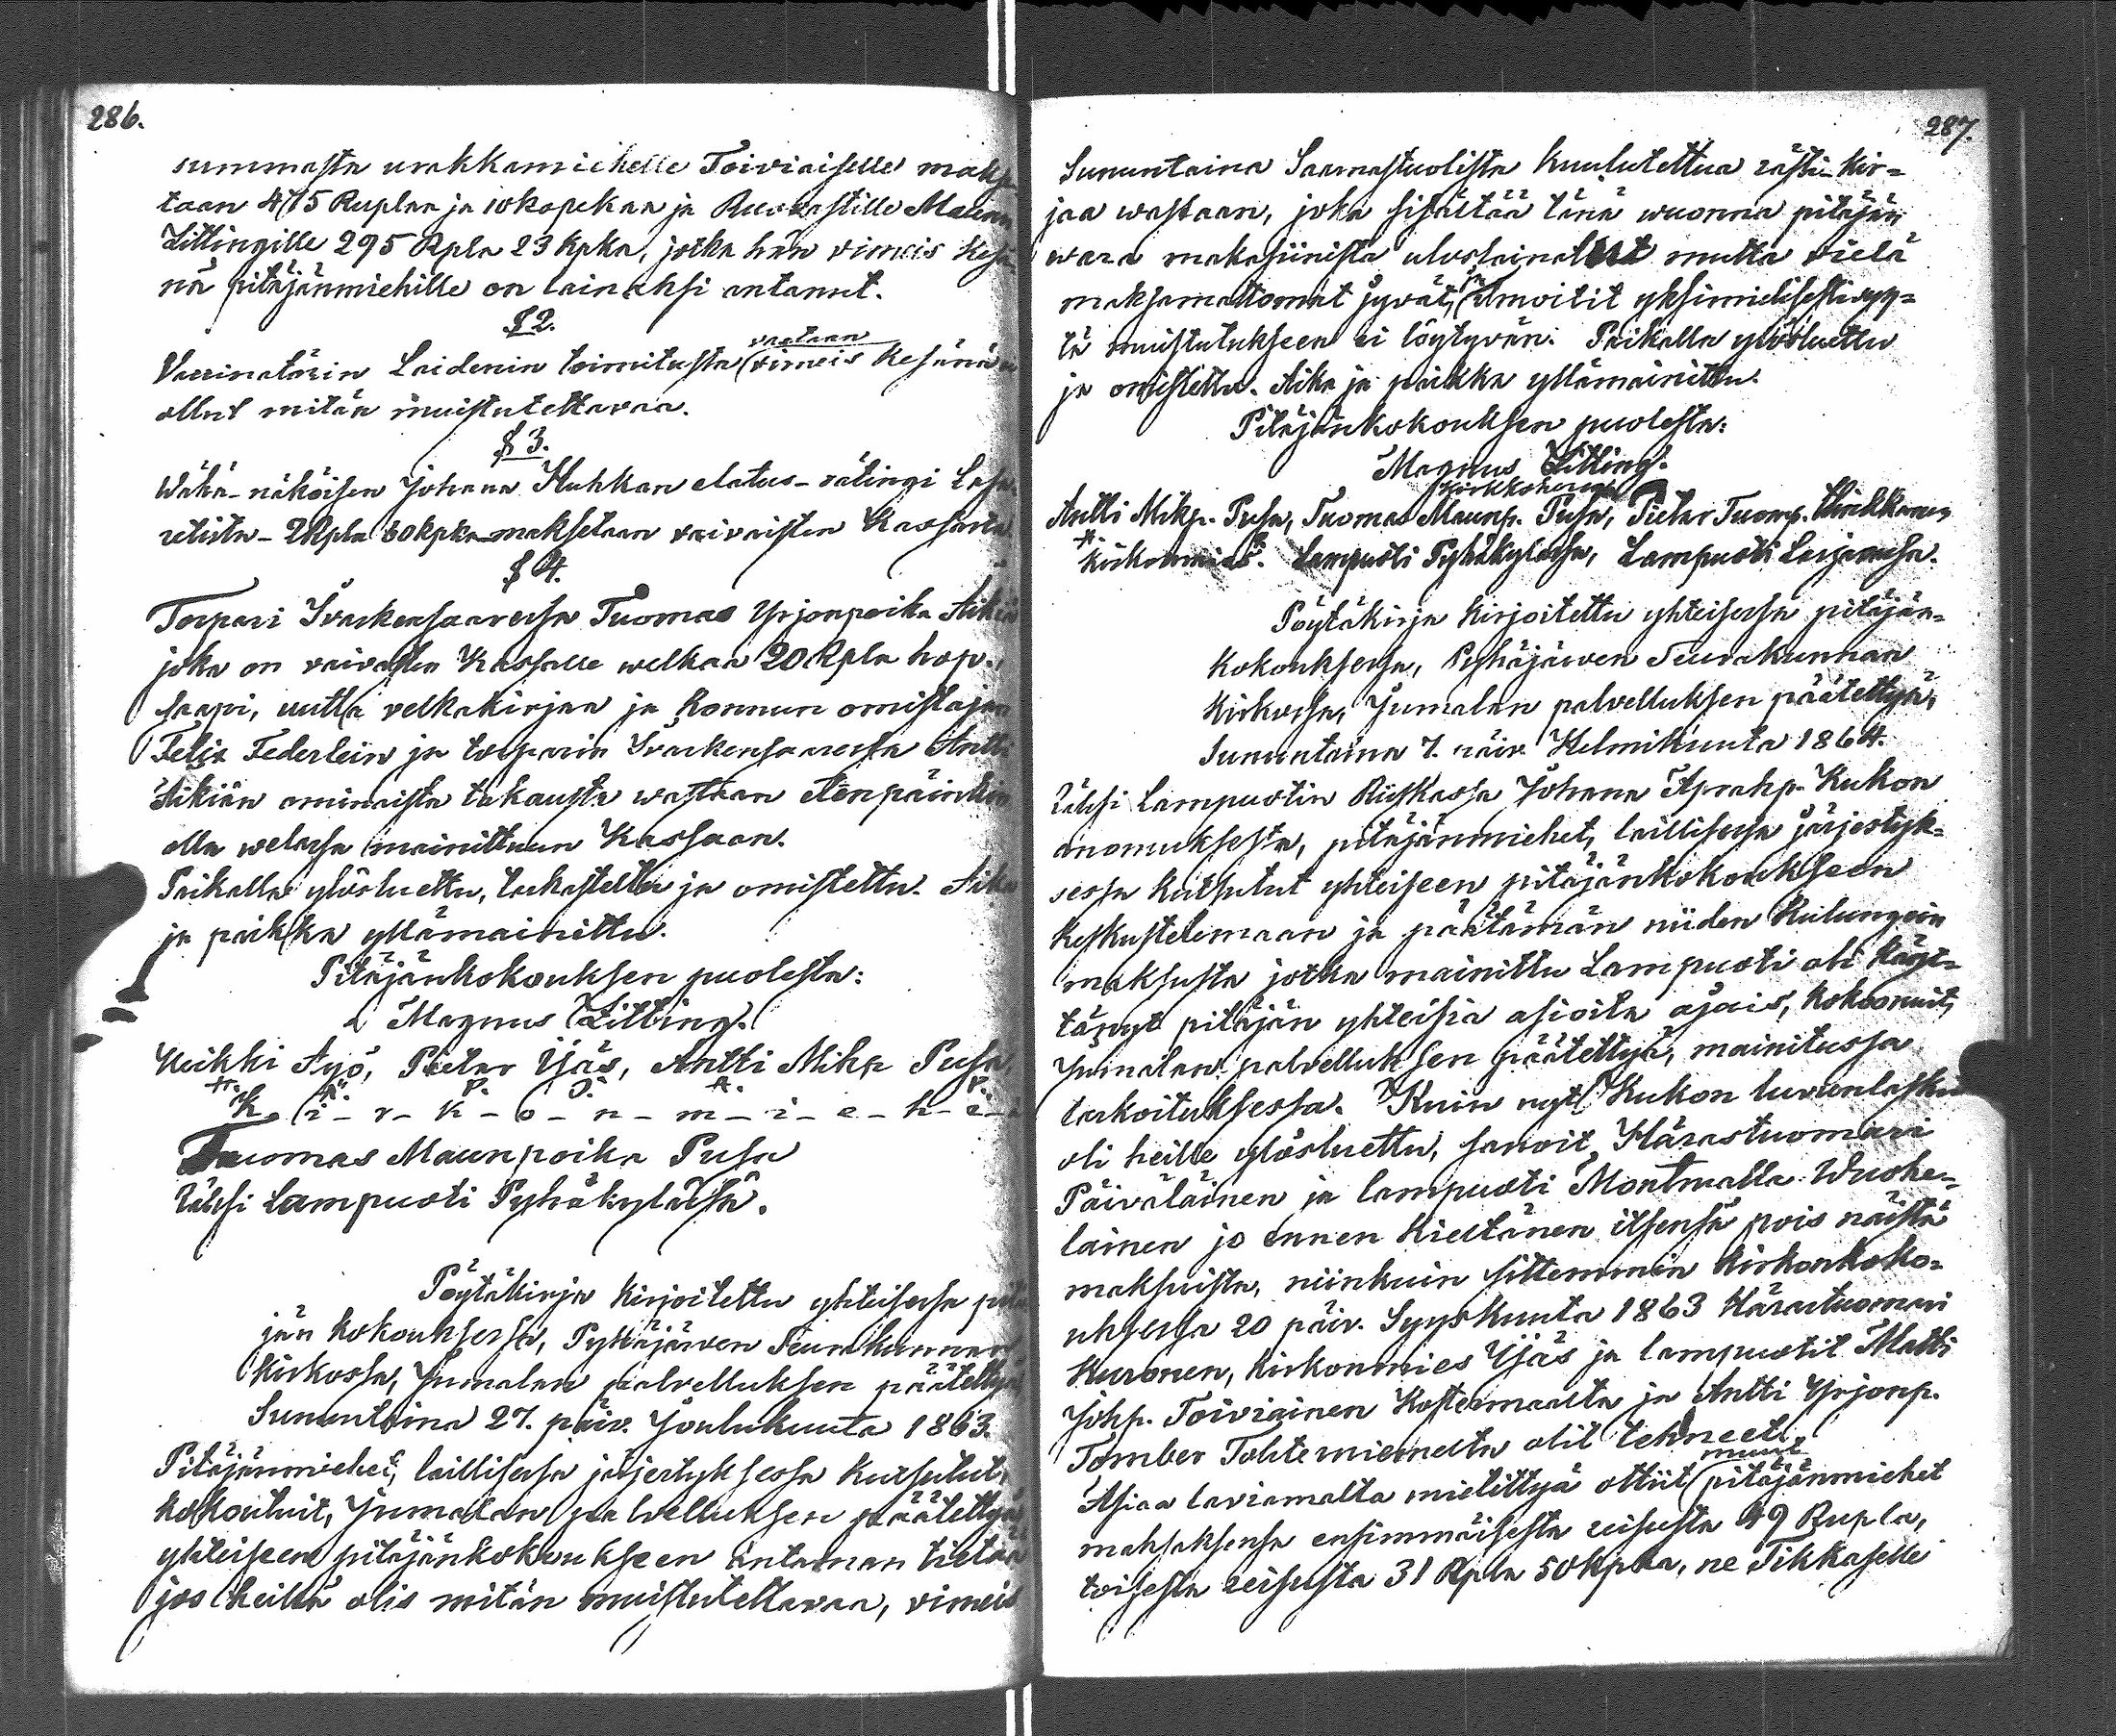 286.
summasta urakkamiehelle Toiviaiselle makse
taan 475 Ruplaa ja 10 kopekaa ja Ruovastille Maunu
Littingille 295 Rpla 23 kpka, jotka hän vimeis kesä
nä pitäjänmiehille on lainaksi antanut.
§ 2.
vastaan
Vaccinatörin Laidenin toimitusta vimeis kesänä
ollut mitän muistutettavaa.
§ 3.
Wähä-näköisen Johana Huhkan elatus-rätingi Lasa
retista 2 Rpla 60 kpka maksetaan vaivaisten Kassasta
§ 4.
Torpari Svarkensaaressa Tuomas Yrjonpoika Aikiä
joka on vaivasten Kassalle welkaa 20 Rpla hop.
saapi, uutta velkakirjaa ja Konnun omistajan
Felix Federlein ja torparin Svarkensaaressa Antti
Aikiän ominaista takausta wastaan etenpäinkin
olla welassa mainittuun Kassaan.
Paikalla ylösluettu, tarkastettu ja omistettu. Aika
ja paikka yllämainittu.
Pitäjänkokouksen puolesta:
Magnus Litting.
Heikki Äyö, Pietar Ijäs, Antti Mikp Pusa
K-i-r-k-o-n-m-i-e-h-e-
Tuomas Maunpoika Pusa
Läksi Lampuoti Pyhäkylässä.
Pöytäkirja kirjoitettu yhteisessa pitä
jän kokouksessa, Pyhäjärven Seurakunnan
kirkossa, Jumalan palvelluksen päätettyä
Sunnuntaina 27. päiv. Joulukuuta 1863.
Pitäjänmiehet, laillisessa järjestyksessa kutsutut,
kokoutuit, Jumalan palvelluksen päätettyä
yhteiseen pitäjänkokoukseen antaman tietää
jos heillä olis mitän muistutettavaa, vimeis
287.
Sununtaina Saarnastuolista kuulutettua rästi-kir=
jaa wastaan, joka sisältää tänä wuonna pitäjän
wara makasiinista uloslainatut mutta vielä
maksamattomat jyvät, ja ilmoitit yksimielisesti syy=
tä muistutukseen ei löytyvän. Paikalla ylösluettu
ja omistettu. Aika ja paikka yllämainittu.
Pitäjänkokouksen puolesta:
Magnus Litting.
kirkkoherra
Antti Mikp. Pusa, Tuomas Maunp. Pusa, Pietar Tuomp. Hinkkanen
kirkonmies. Lampuoti Pyhäkylässa, Lampuoti Larjavassa.
Pöytäkirja kirjoitettu yhteisessa pitäjän=
kokouksessa, Pyhäjärwen Seurakunnan
kirkossa, Jumalan palvelluksen päätettyä,
Sununtaina 7. päiv. Helmikuuta 1864.
Läksi Lampuotin Riiskassa Johana Aprahp. Kukon
anomuksesta, pitäjänmiehet, laillisessa järjestyk=
sessa kutsutut yhteiseen pitäjänkokoukseen
keskustelemaan ja päätämän niiden kulungein
maksusta jotka mainittu Lampuoti oli käyt=
tänyt pitäjän yhteisia asioita ajais, kokoonuit,
Jumalan palvelluksen päätettyä, mainitussa
tarkoituksessa. Kuin nyt Kukon luvunlasku
oli heille ylösluettu, sanoit Härastuomari
Päiväläinen ja lampuoti Montmalta Wuohe=
lainen jo ennen kieltänen itsensä pois näistä
maksuista, niinkuin sittemmin kirkonkoko=
uksessa 20 päiv. Syyskuuta 1863 Härastuomari
Kuronen, kirkonmies Ijäs ja lampuotit Matti
Johp. Toiviainen Kostermaalta ja Antti Yrjonp.
Tomber Tohtemiemelta olit tehneet.
muut
Asiaa laviamalta mietittyä ottiit pitäjänmiehet
maksaksensa ensimmäisesta reisusta 49 Rupla,
toisesta reisusta 31 Rpla 50 kpka, ne Tikkaselle